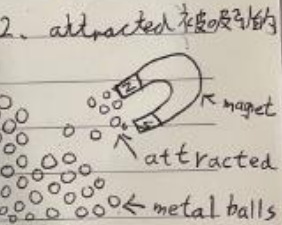 2、attracted 被吸引的
N
magnet
S
attracted
metal balls